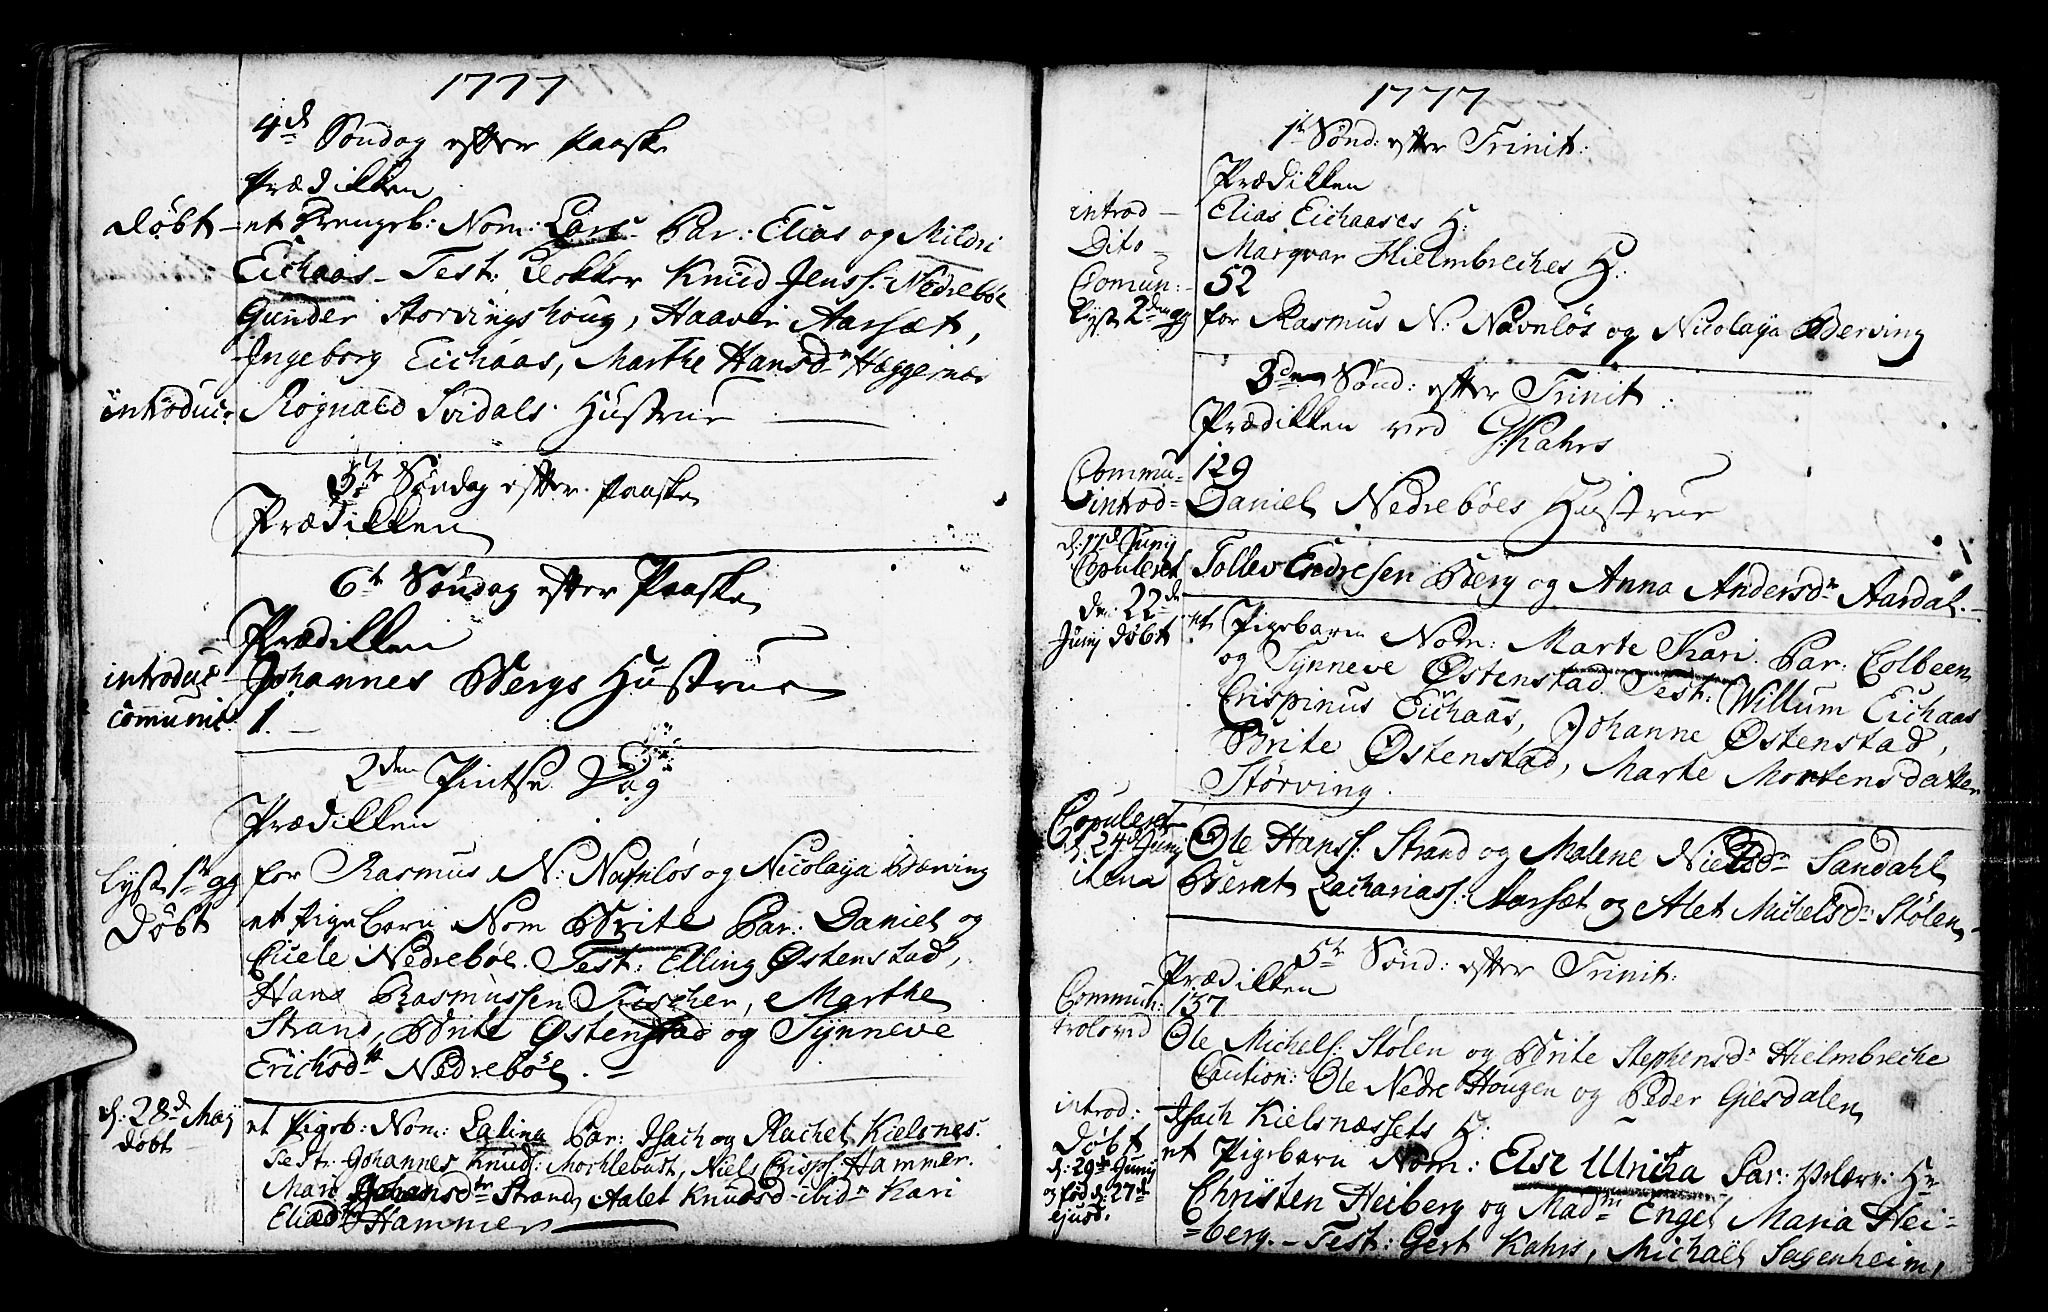 1777
4d Søndag efter paaske
Prædikken
døbt - et Drengeb: Nom: Lars Par: Elias og Mildri
Eichaas - Test: Klokker Knud Jenss: Nedrebøe
Gunder Storvingshoug, Haaver Aarsæt,
Ingeborg Eichaas, Marthe Hansdr Hæggernæs
introduc: Rognald Svidals Hustrue
5te Søndag efter paaske
Prædikken
6te Søndag efter Paaske
Prædikken
introduc Johannes Bergs Hustrue
communic: 1.
2den Pintse Dag
Prædikken
Lyst 1ste gg for Rasmus N: Navnløs og Nicolaya Berving
Døbt et Pigebarn Nom Brite Par: Daniel og
Nedrebøe. Test: Elling Østenstad,
Hans Rasmussen Fischer, Marthe
Strand, Brite Østenstad og Synneve
Erichsdtr Nedrebøe.
d: 28d Maÿ et Pigeb: Nom: Lalina Par: Isach og Rachel Kielsnes.
døbt Test: Johannes Knuds: Mochlebust, Niels Crisps: Hammer.
Mari Johansdtr Strand, Aalet Knudsd ibidm Kari
Eliædtr Hammer
1777
1te Sønd: efter Trinit:
Prædikken
introd - Elias Eichaases H:
Dito - Marqvar Hielmbreches H:
Comun: - 52
Lyst 2den gg for Rasmus N: Navnløs og Nicolaya Berving
3den Sønd: efter Trinit:
Prædikken ved G: Kahrs
Commu: 129
introd: Daniel Nedrebøes Hustrue
d: 17d Junÿ
Copuleret Tollev Endresen Berg og Anna Andersdr Aardal.
den: 22de et Pigebarn Nom: Marte Kari. Par: Colbeen
Junÿ døbt og Synneve Østenstad Test: Willum Eichaas
Crispinus Eichaas, Johanne Østenstad,
Brite Østenstad, Marte Mortensdatter
Størving.
Copuleret
d: 24d Junÿ Ole Hanss: Strand og Malene Nielsdr Sandahl
item Bernt Zachariass: Aarsæt og Alet Michelsdr: Stølen
5te Sønd: efter Trinit:
Prædikken
Commun: 137
troloved Ole Michels: Stølen og Brite Stephensdr Hielmbreche
Caution: Ole Nedre Hougen og Peder Giesdalen
introd: Isach Kielsnæssets H:
Døbt et Pigebarn Nom: Else Ulricha Par: Hr
d: 29de Junÿ Christen Heiberg og Madme Engel Maria Hei=
og fød d: 27de =berg. - Test: Gert Kahrs, Michaël Sagenheim,
ejusd.